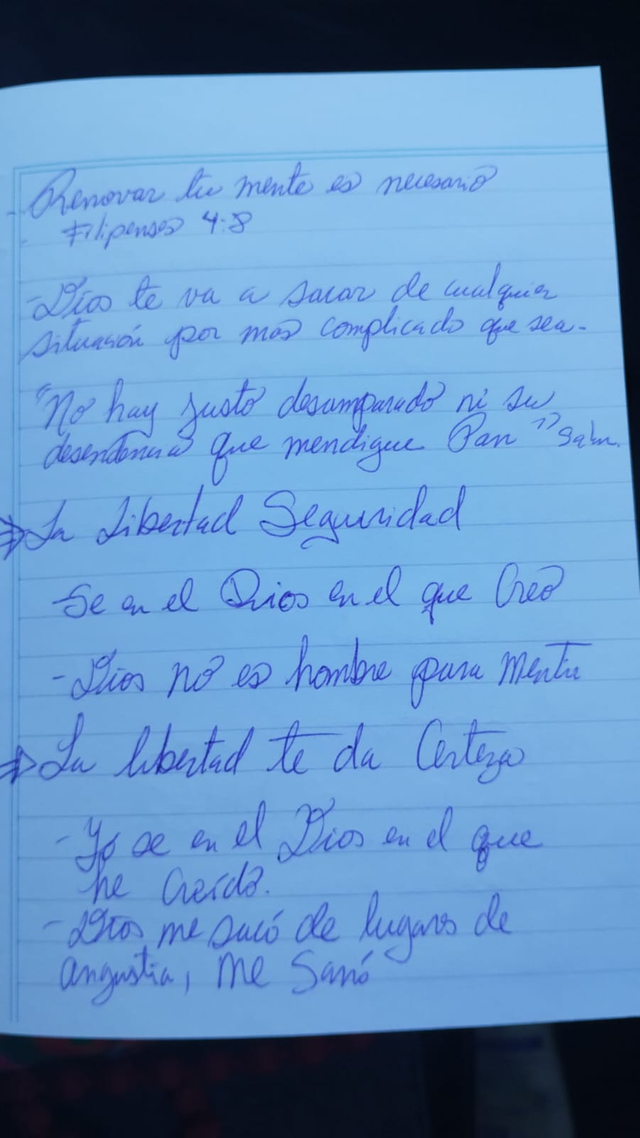 - Renovar tu mente es necesario
- Filipenses 4:8
- Dios te va a sacar de cualquier
situación por mas complicado que sea.
"No hay justo desamparado ni su
desendencia que mendigue Pan" Salm.
⇒ La Libertad Seguridad
- Se en el Dios en el que Creo
- Dios no es hombre para mentir
⇒ La libertad te da Certeza
- Yo se en el Dios en el que
he Creído.
- Dios me sacó de lugares de
angustia, me Sanó